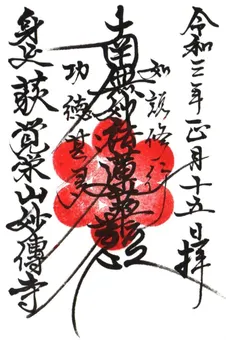 令和三年正月十五日拝
如説修行
南無妙法蓮華経
功徳甚多
身延 荻 覚栄山妙傳寺